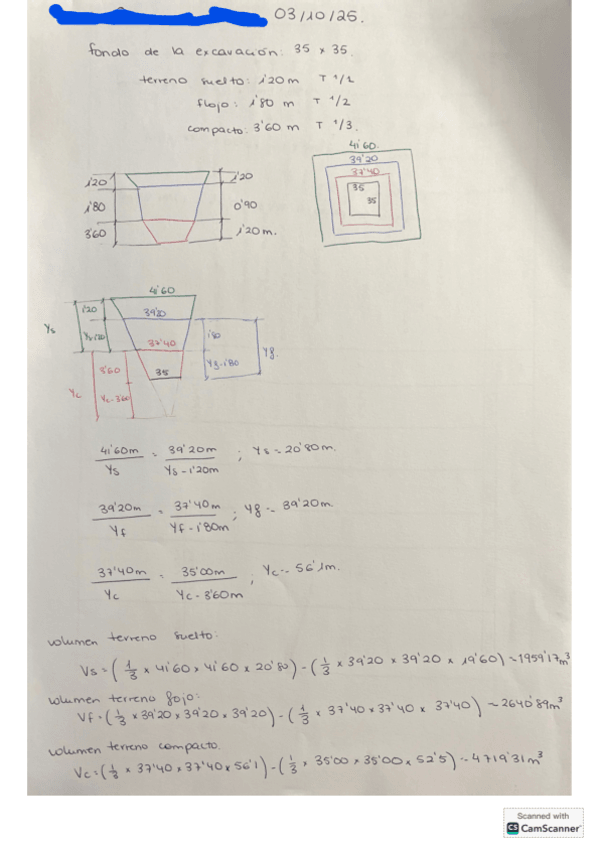 03/10/25.
fondo de la excavación: 35 x 35.
terreno suelto: 1'20 m T 1/1
flojo: 1'80 m T 1/2
compacto: 3'60 m T 1/3.
41'60.
39'20
37'40
35
35
1'20
1'80
3'60
1'20
0'90
1'20m.
41'60
1'20
39'20
Ys
Ys-1'20
37'40
1'80
Yf-1'80
Yf.
3'60
35
Yc
Yc-3'60
41'60m / Ys = 39'20m / Ys-1'20m ; Ys = 20'80m.
39'20m / Yf = 37'40m / Yf-1'80m ; Yf = 39'20m.
37'40m / Yc = 35'00m / Yc-3'60m ; Yc = 56'1m.
volumen terreno suelto:
Vs = (1/3 x 41'60 x 41'60 x 20'80) - (1/3 x 39'20 x 39'20 x 19'60) = 1959'17m³
volumen terreno flojo:
Vf = (1/3 x 39'20 x 39'20 x 39'20) - (1/3 x 37'40 x 37'40 x 37'40) = 2640'89m³
volumen terreno compacto.
Vc = (1/3 x 37'40 x 37'40 x 56'1) - (1/3 x 35'00 x 35'00 x 52'5) = 4719'31m³
Scanned with
CS CamScanner